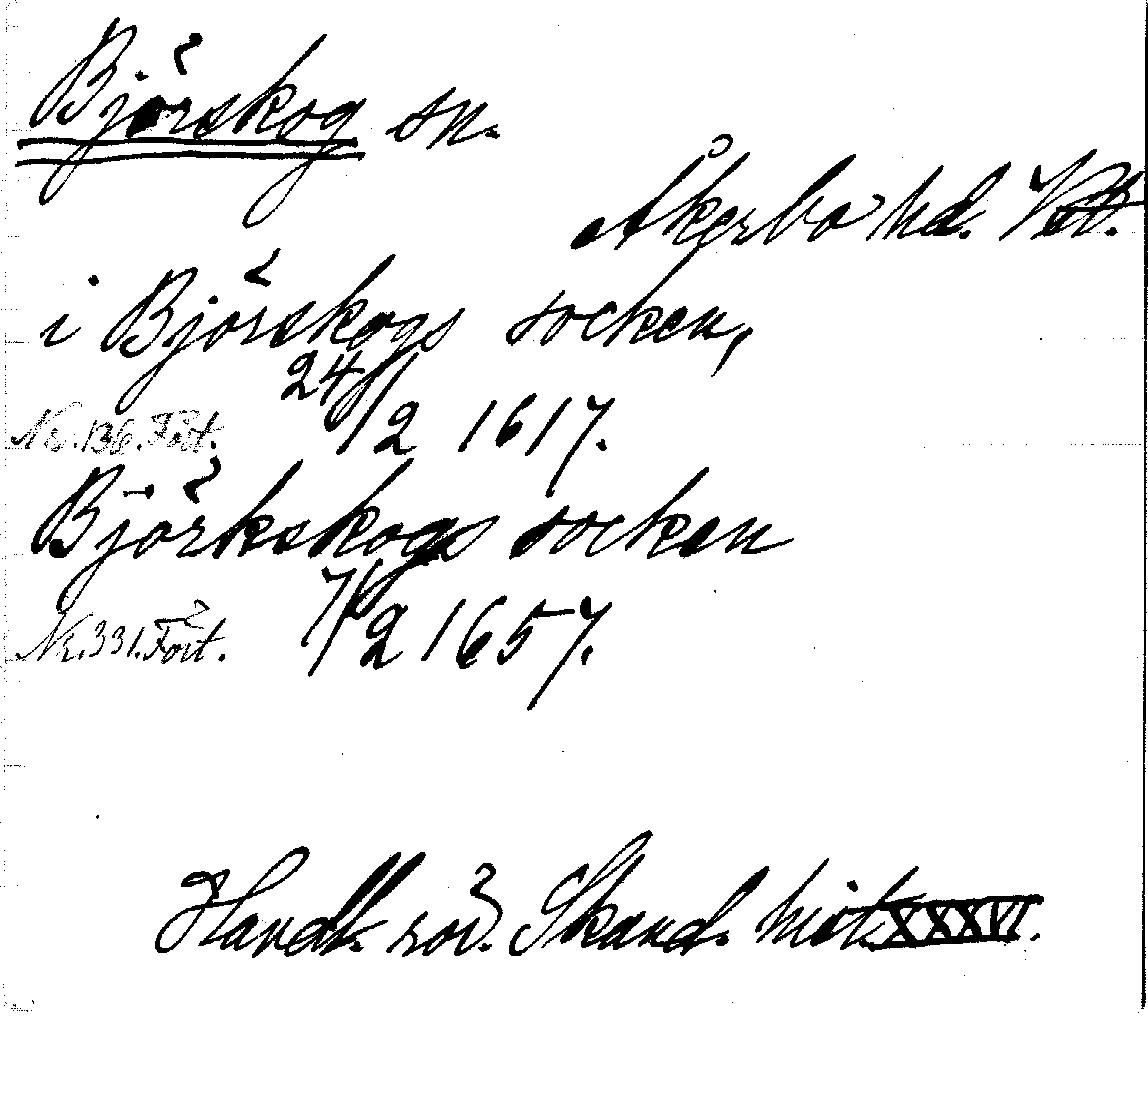 Björskog sn.
Åkerbo hd. Vstm.
i Björskogs socken,
24/2 1617.
Nr. 136. Fört.
Björkskogs socken
7/2 1657.
Nr. 331. Fört.
Handl. rör. Skand. hist. XXXVI.